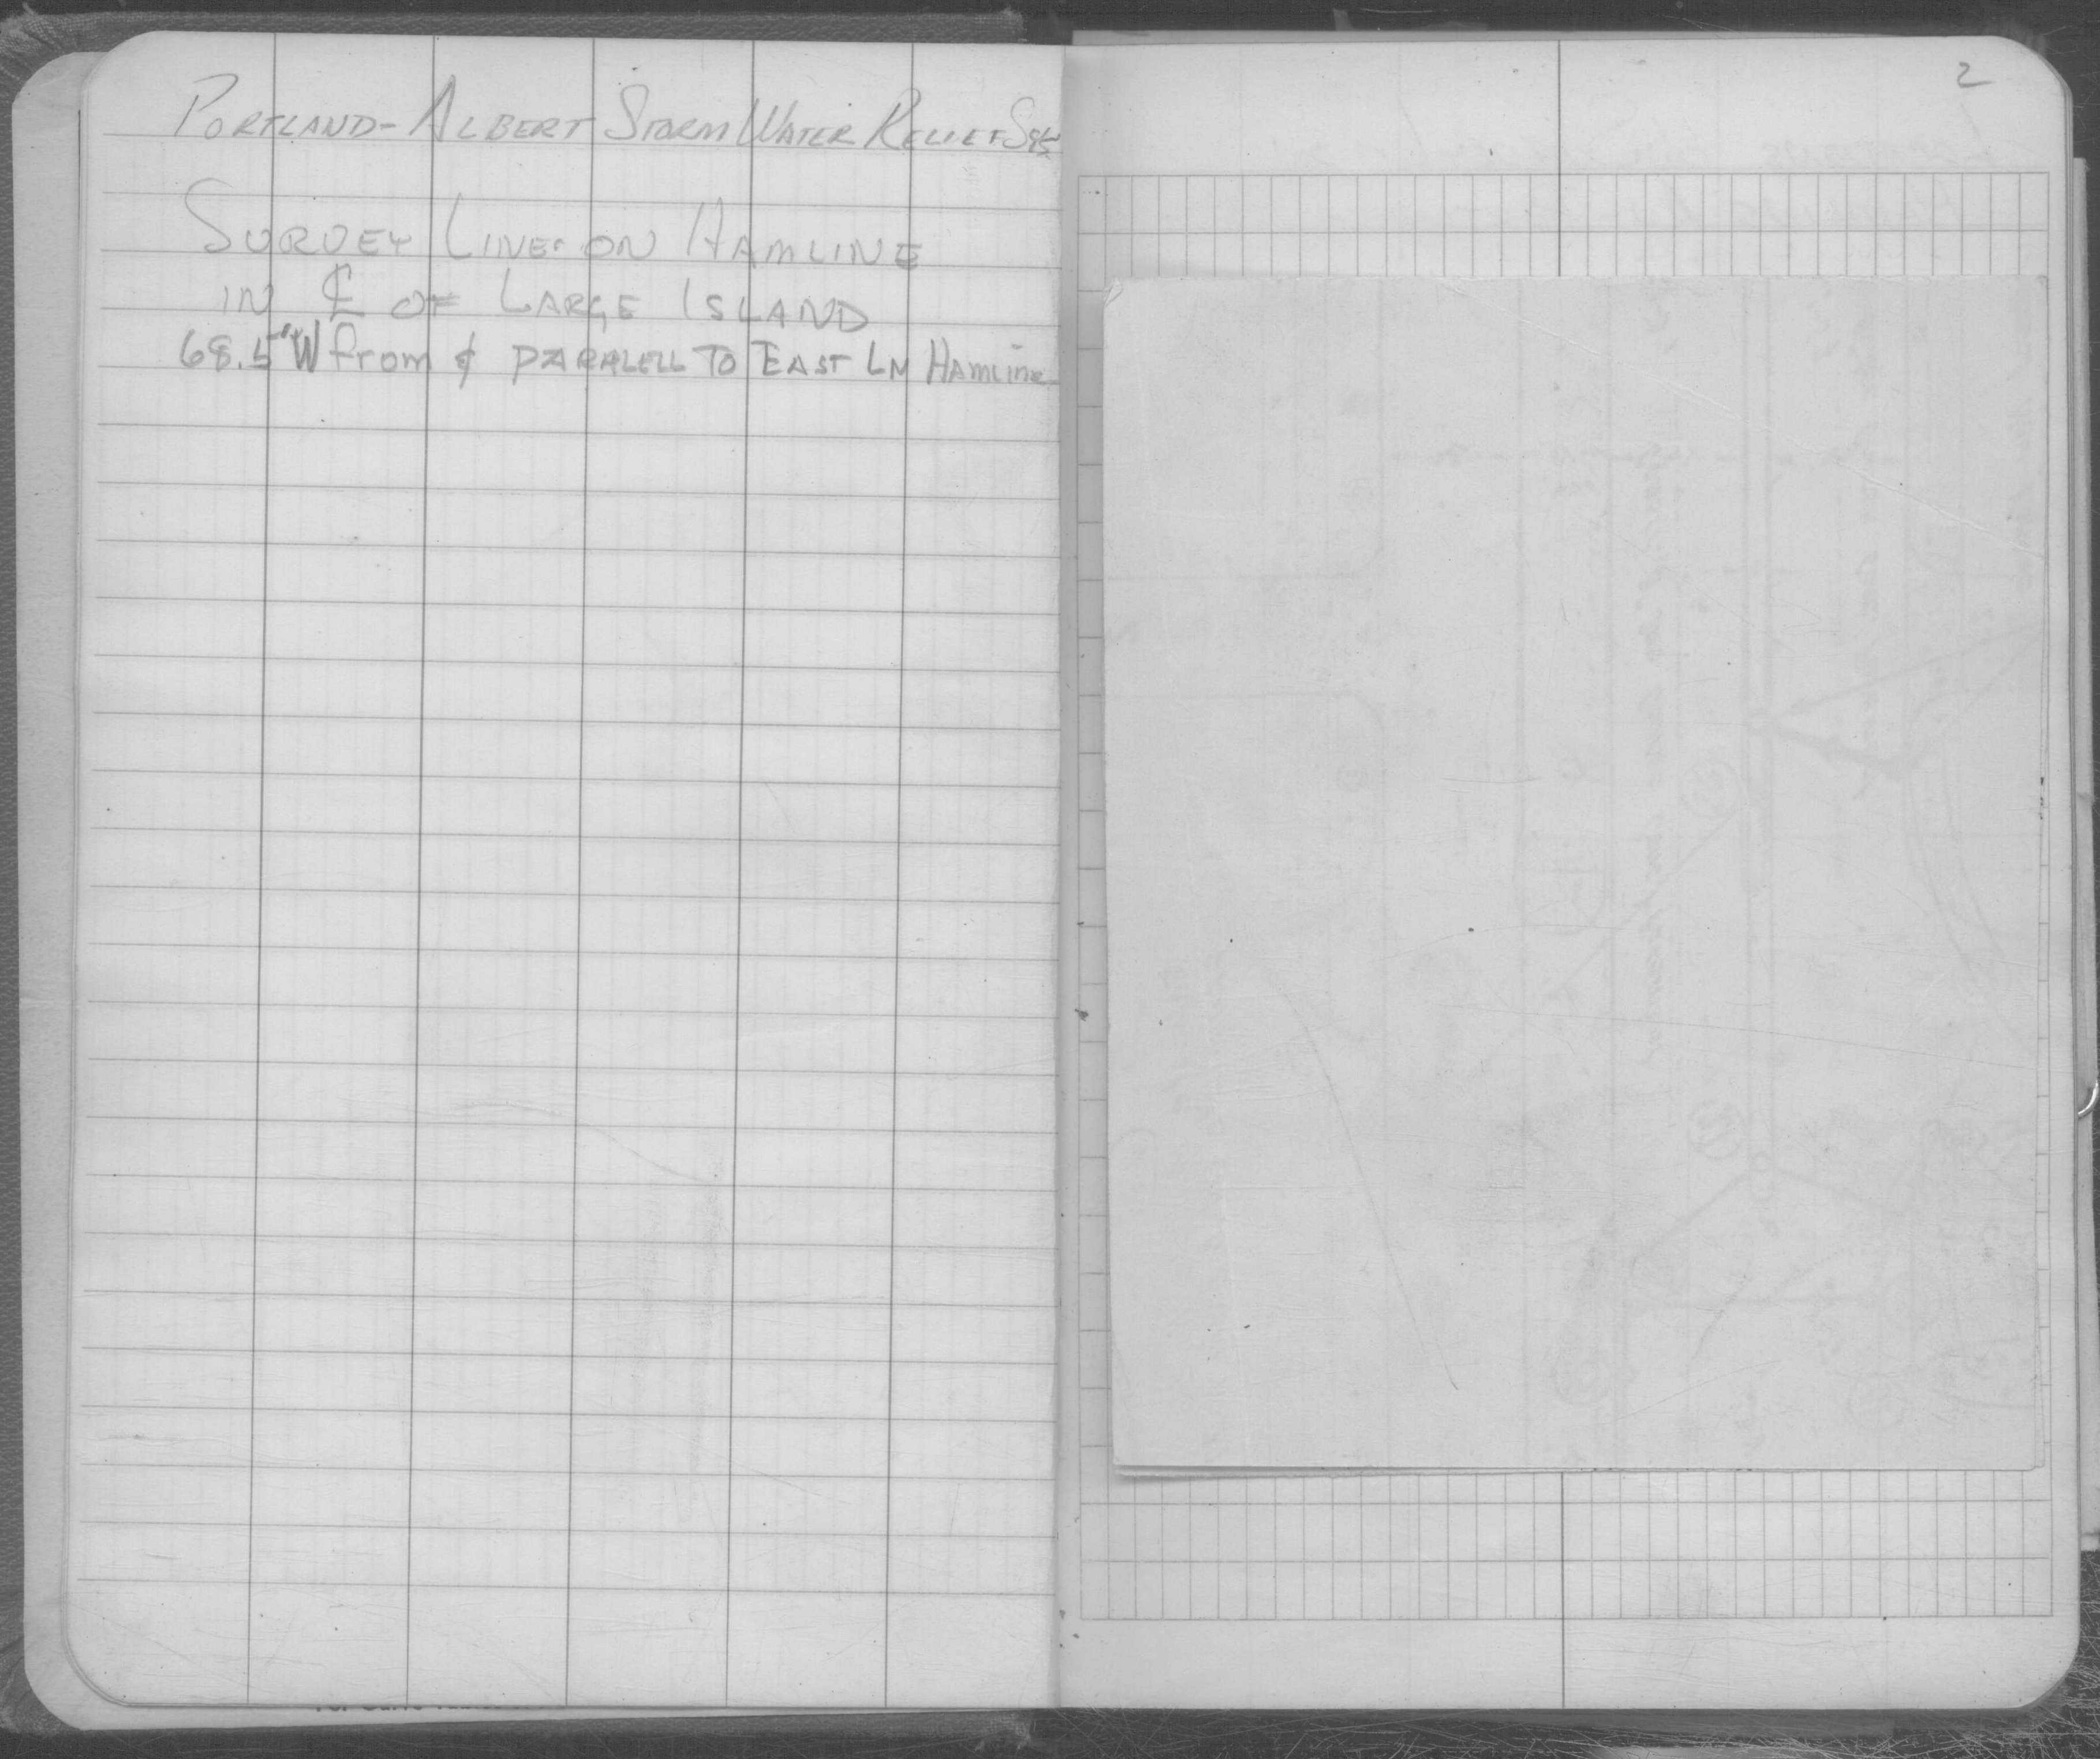 PORTLAND-ALBERT STORM WATER RELIEF SYS
SURVEY LINE ON HAMLINE
IN ℄ OF LARGE ISLAND
68.5' W from & PARALELL TO EAST LN HAMLINE
2